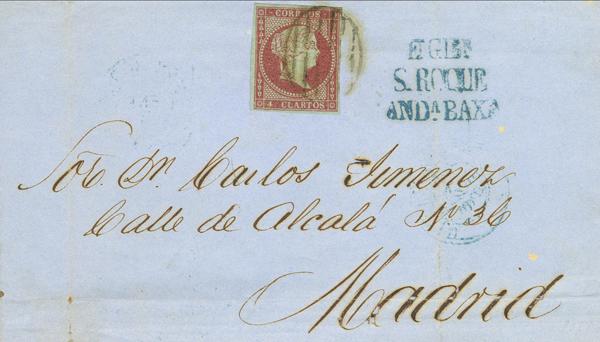 CORREOS
4 CUARTOS
S. ROQUE
ANDª BAXA
Sor. Dn. Carlos Jimenez
Calle de Alcalá Nº 36
Madrid